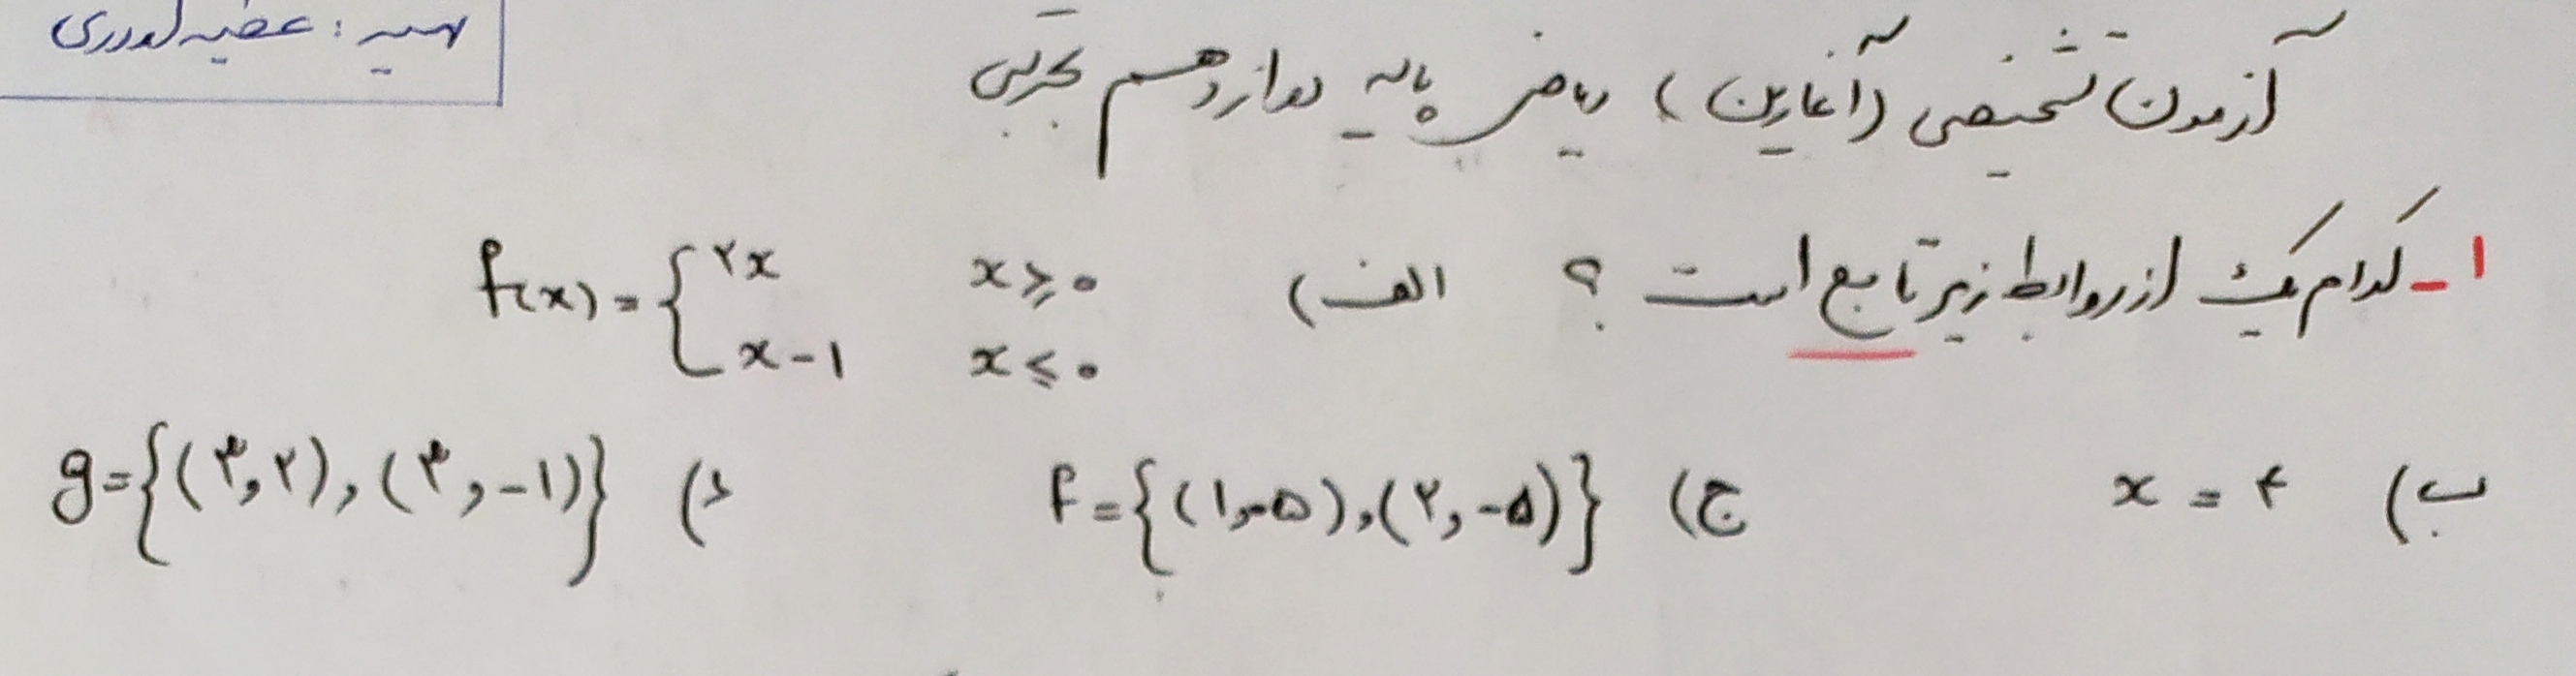 تهیه :
آزمون تشخیصی (آغازین) ریاضی پایه دوازدهم تجربی
۱- کدام یک از روابط زیر تابع است ؟ الف) f(x) = { ۲x x ≥ ۰
x - ۱ x ≤ ۰
ب) x = ۴ ج) f = {(۱, -۵), (۲, -۵)} د) g = {(۳, ۲), (۳, -۱)}